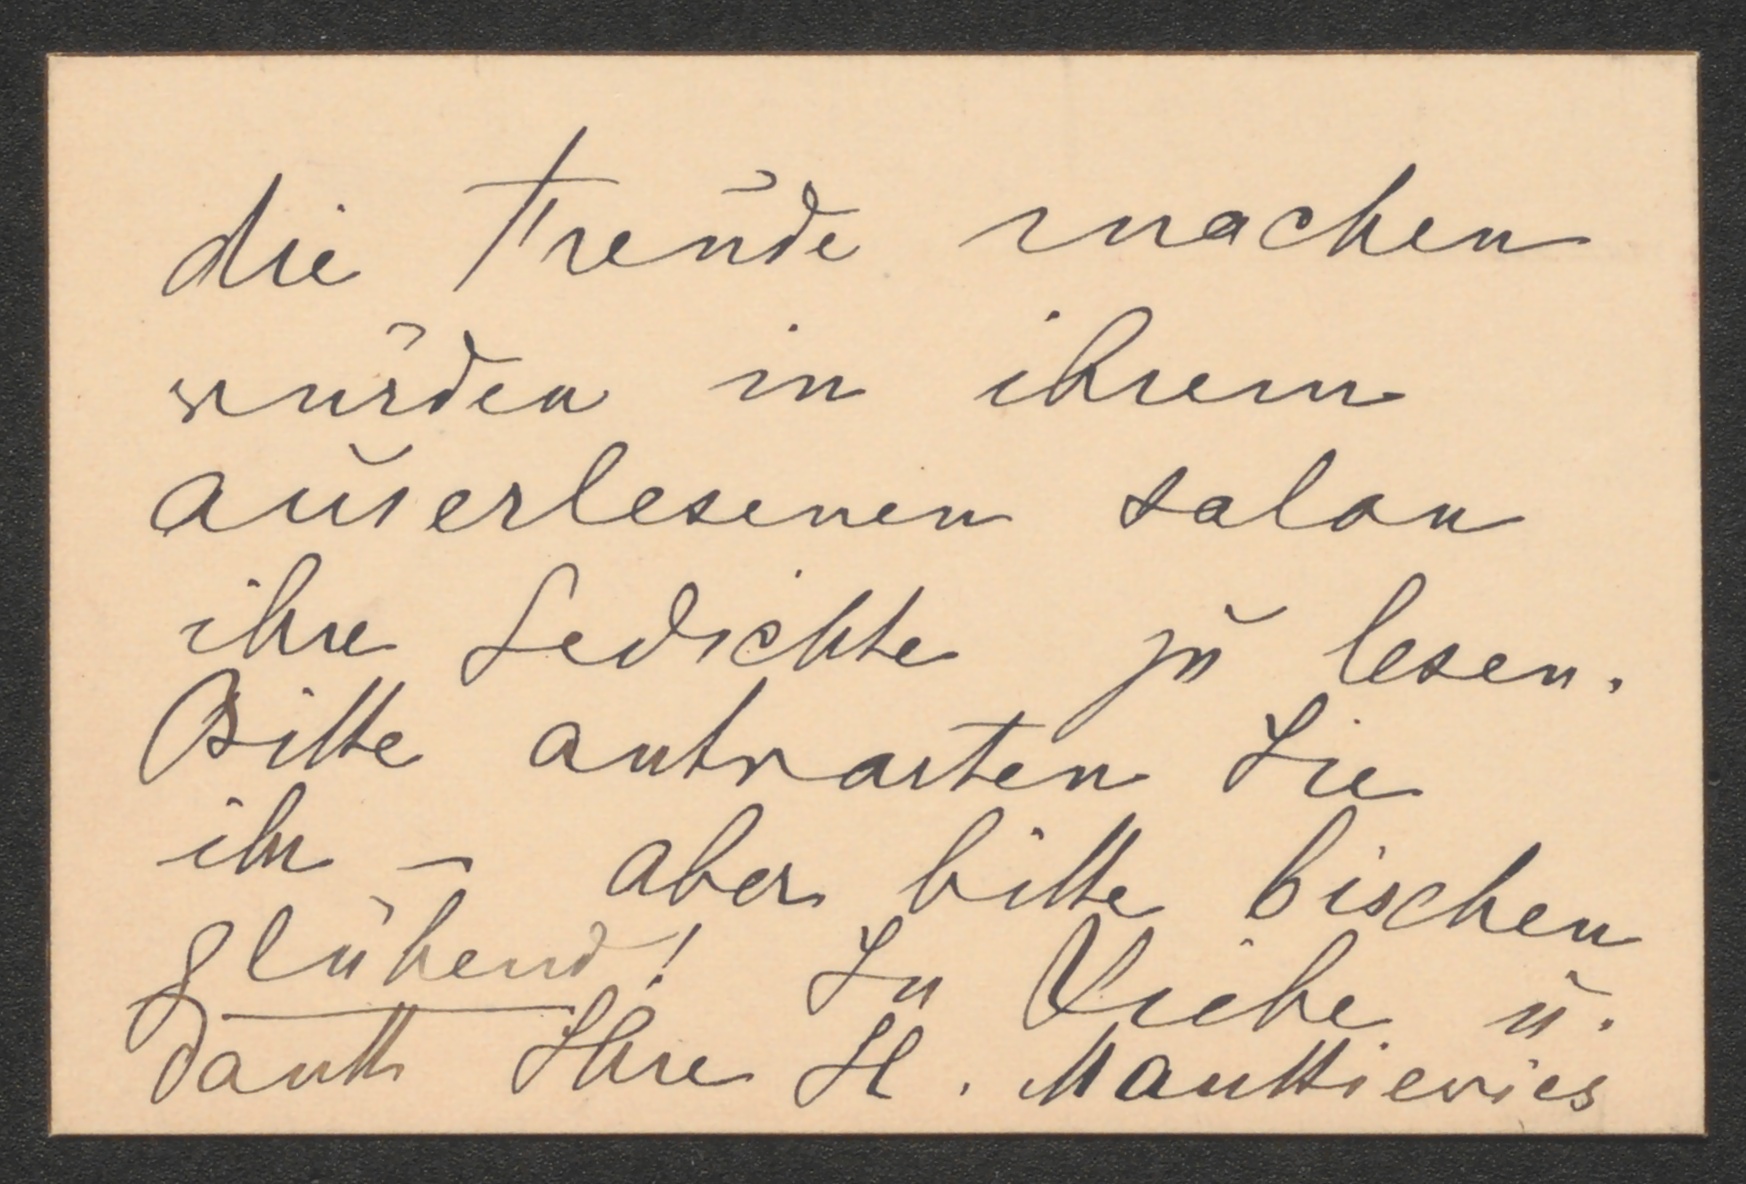 die Freude machen
würden in ihrem
auserlesenen salon
ihre Gedichte zu lesen.
Bitte antworten Sie
ihr – aber bitte bischen
glühend! In Liebe u.
dank Ihre H. Mankiewics